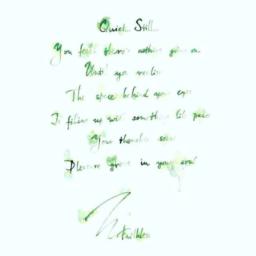 Quiet Still
You feel there's nothing goin on
Until you realise
The space behind your eyes
Is filling up with something like
Your thoughts
Pleasure in your soul